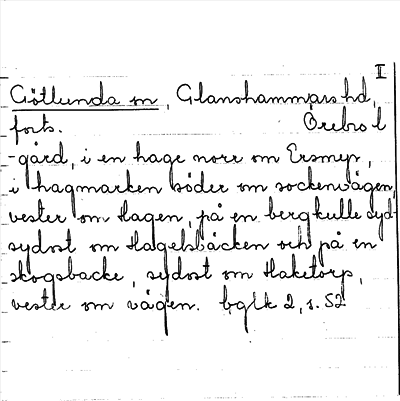 II
Götlunda sn, Glanshammars hd,
forts. Örebro l
-gård, i en hage norr om Ersmyr,
i hagmarken söder om sockenvägen,
vester om Hagen, på en bergkulle syd-
sydost om Hagelsbäcken och på en
skogsbacke, sydost om Haketorp,
vester om vägen. bglk 2, s. 52